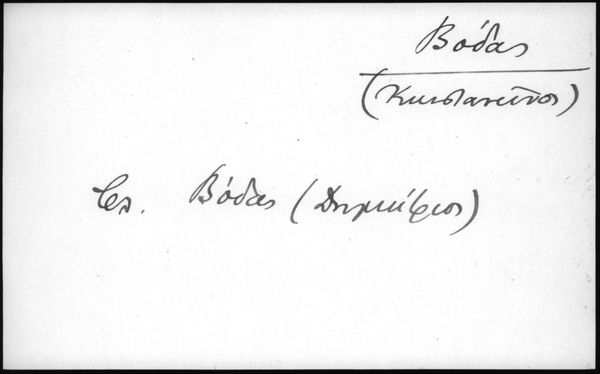 Βόδας
(Κωνσταντῖνος)
Βλ. Βόδας (Δημήτριος)